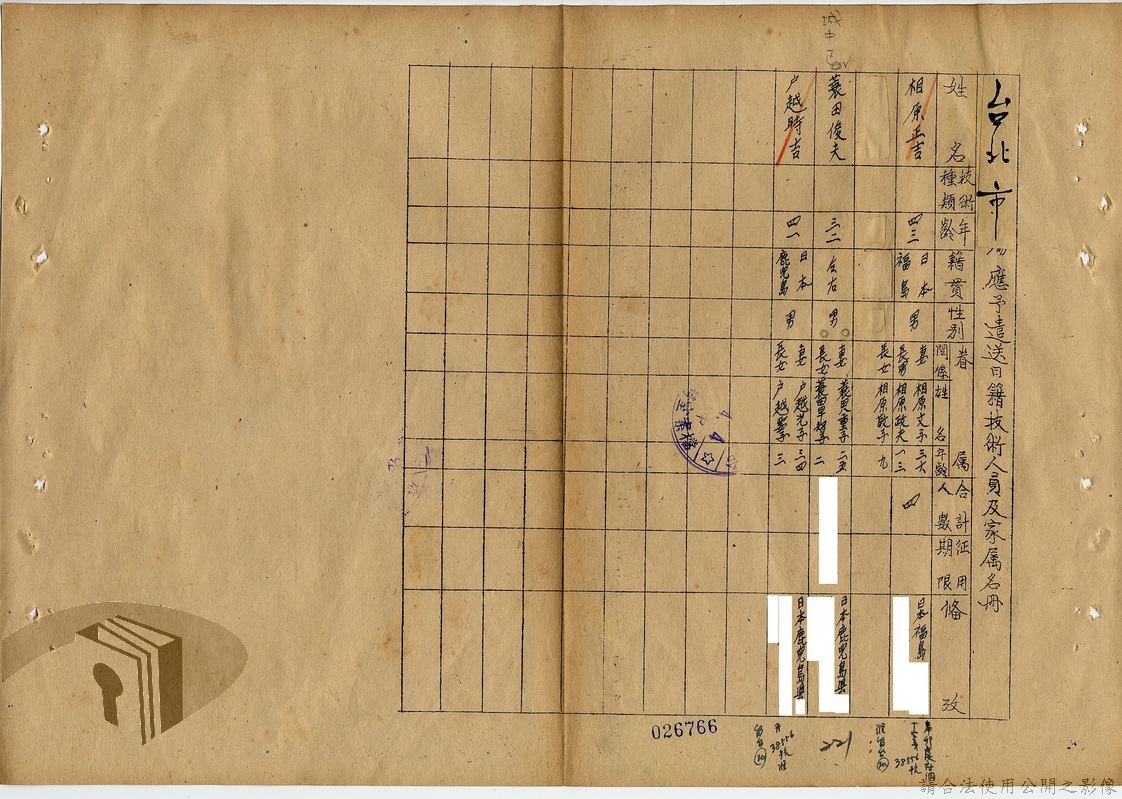 台北市
應予遣送日籍技術人員及家属名冊
姓名
技術種類
年齡
籍貫
性別
眷属
關係
姓名
年齡
合計人數
征用期限
備攷
相原正吉
四三
日本福島
男
妻 相原文子 三六
長男 相原政夫 一三
長女 相原敬子 九
四
日本福島
蓑田俊夫
三二
仝右
男
妻 蓑田重子 二五
長女
二
日本鹿児島県
戸越時吉
四一
日本鹿児島
男
妻 戸越光子 三四
長女
三
日本鹿児島県
城中
026766
221
38556
38556
請合法使用公開之影像